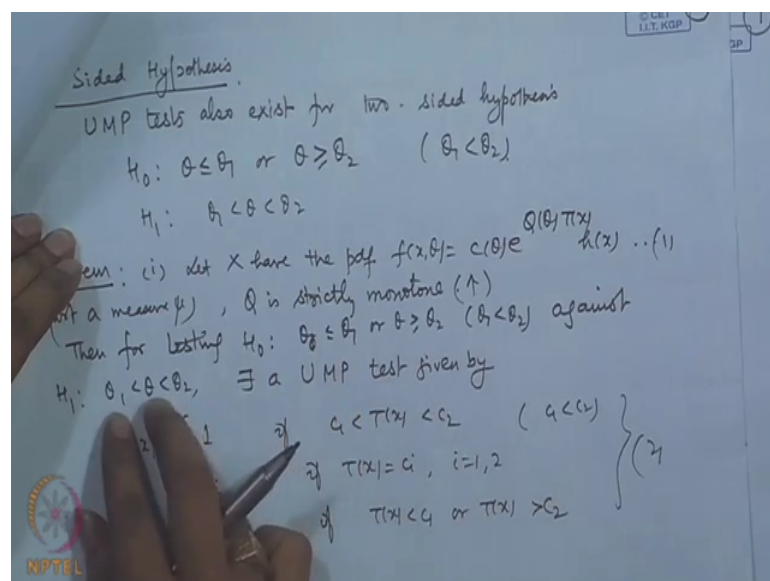 © CET
I.I.T. KGP
Sided Hypothesis.
UMP tests also exist for two-sided hypothesis
H₀: θ ≤ θ₁ or θ ≥ θ₂ (θ₁ < θ₂).
H₁: θ₁ < θ < θ₂
(i) Let X have the pdf f(x,θ) = c(θ) e^{Q(θ) T(x)} h(x) ..(1)
a measure μ), Q is strictly monotone (↑)
Then for testing H₀: θ ≤ θ₁ or θ ≥ θ₂ (θ₁ < θ₂) against
H₁: θ₁ < θ < θ₂, ∃ a UMP test given by
1 if c₁ < T(x) < c₂ (c₁ < c₂)
if T(x) = cᵢ, i=1,2 } (2)
if T(x) < c₁ or T(x) > c₂
NPTEL